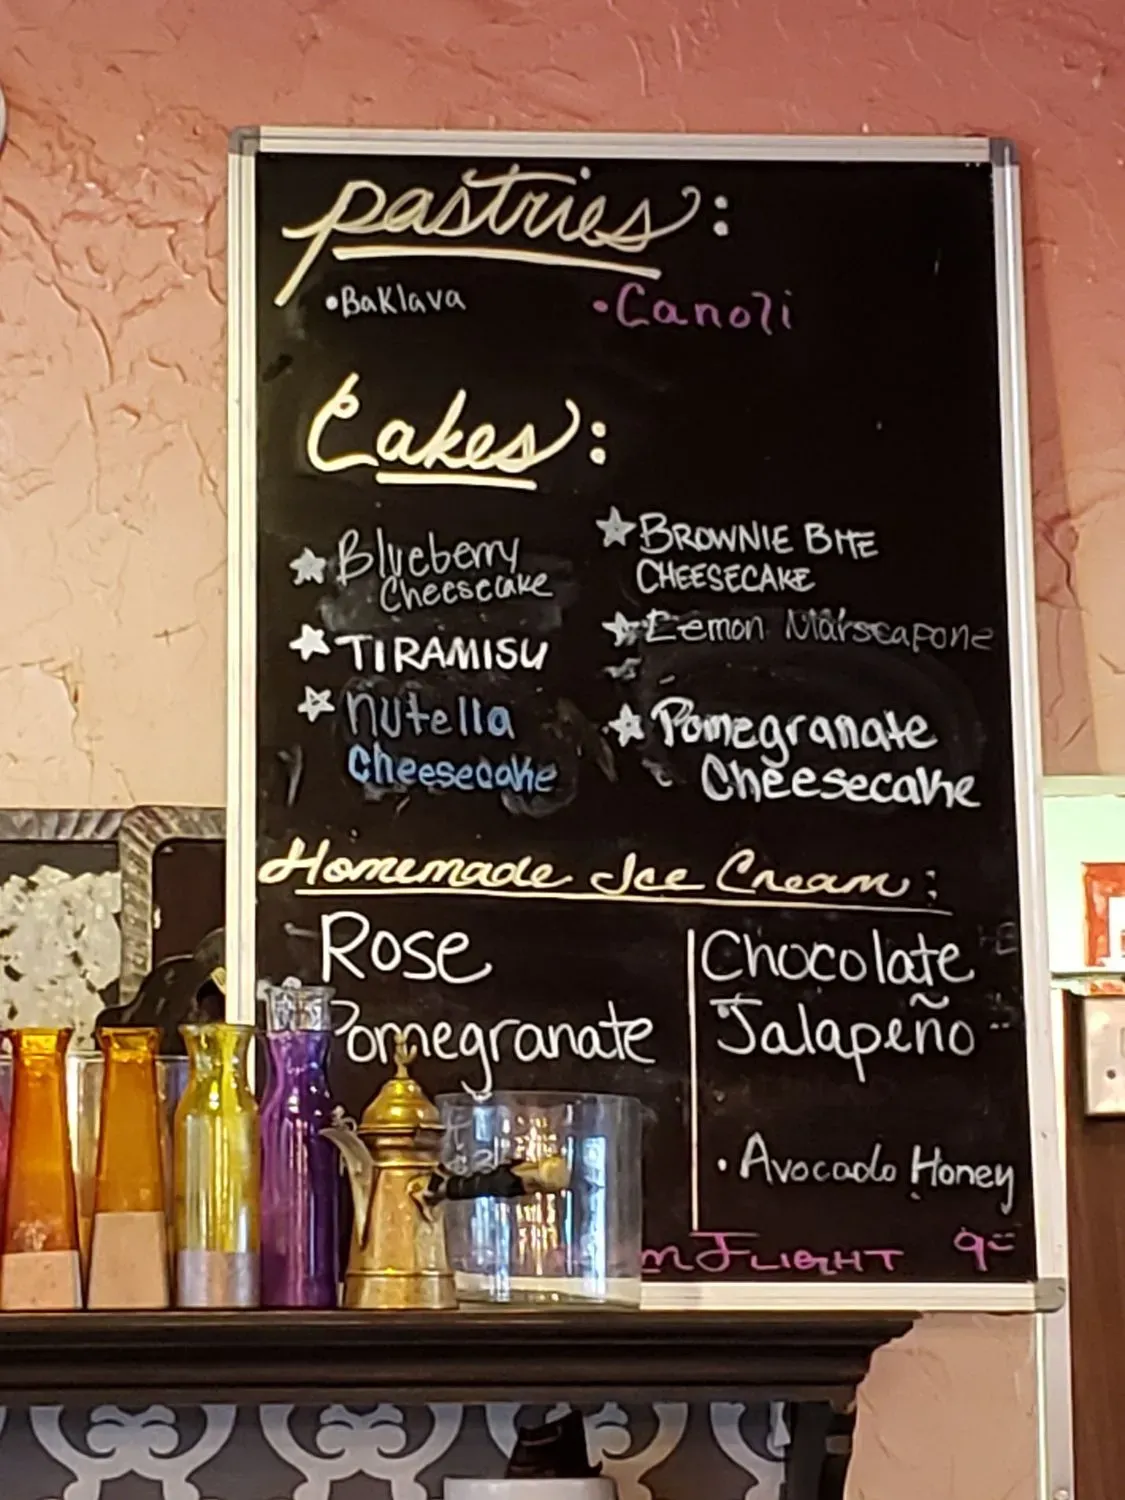 pastries:
• Baklava
• Canoli
Cakes:
Blueberry
Cheesecake
TIRAMISU
Nutella
Cheesecake
BROWNIE BITE
CHEESECAKE
Lemon Marscapone
Pomegranate
Cheesecake
Homemade Ice Cream:
Rose
Pomegranate
Chocolate
Jalapeño
• Avocado Honey
FLIGHT 9